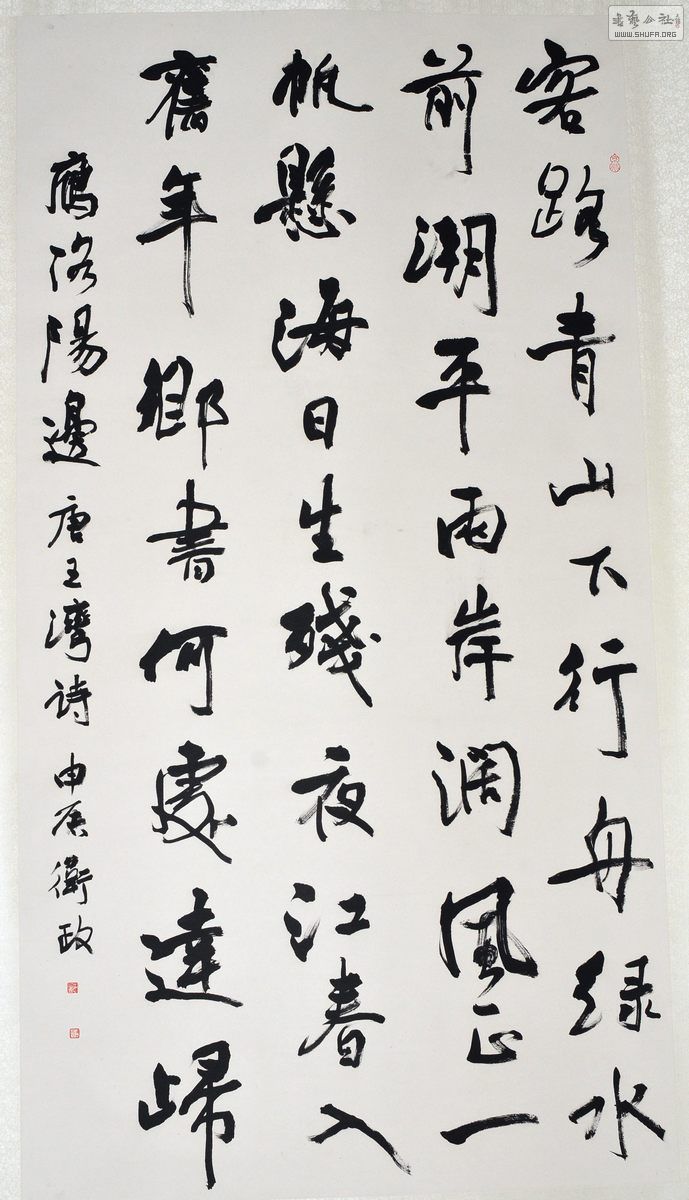 客路青山下行舟绿水
前潮平兩岸濶風正一
帆懸海日生殘夜江春入
舊年鄉書何處達歸
鴈洛陽邊 唐王灣詩 衛政
書藝公社
WWW.SHUFA.ORG